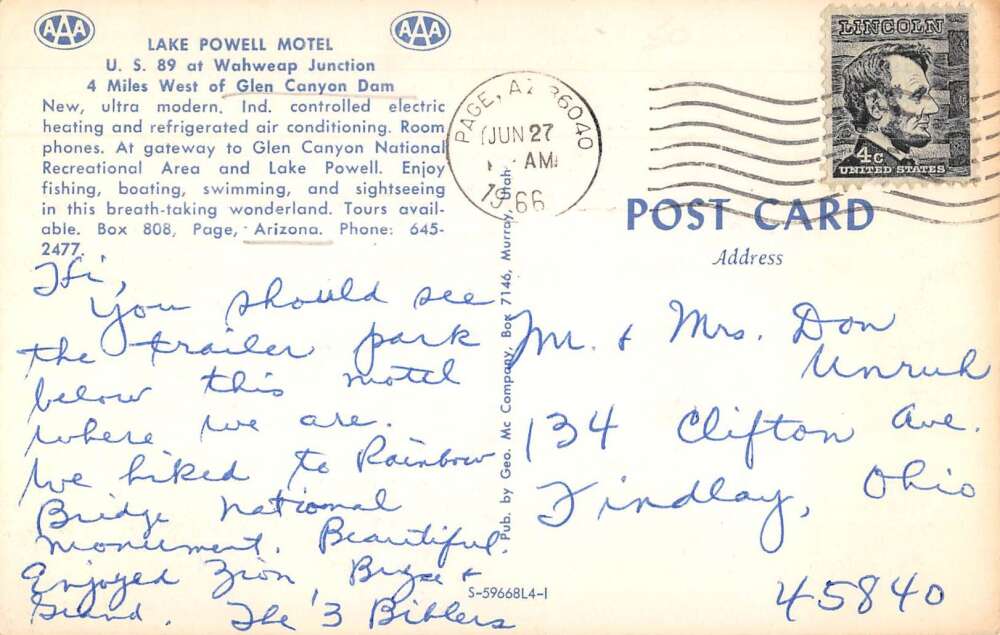 AAA AAA
LAKE POWELL MOTEL
U. S. 89 at Wahweap Junction
4 Miles West of Glen Canyon Dam
New, ultra modern. Ind. controlled electric
heating and refrigerated air conditioning. Room
phones. At gateway to Glen Canyon National
Recreational Area and Lake Powell. Enjoy
fishing, boating, swimming, and sightseeing
in this breath-taking wonderland. Tours avail-
able. Box 808, Page, Arizona. Phone: 645-
2477.
Hi,
You should see
the trailer park
below this motel
where we are.
We hiked to Rainbow
Bridge National
Monument. Beautiful.
Enjoyed Zion, Bryce +
Grand. The 3 Biblers
Pub. by Geo. Mc Company, Box 7146, Murray, Utah
S-59668L4-1
PAGE, AZ 86040
JUN 27
AM
1966
LINCOLN
4c
UNITED STATES
POST CARD
Address
Mr. + Mrs. Don
Unruh
134 Clifton Ave.
Findlay, Ohio
45840